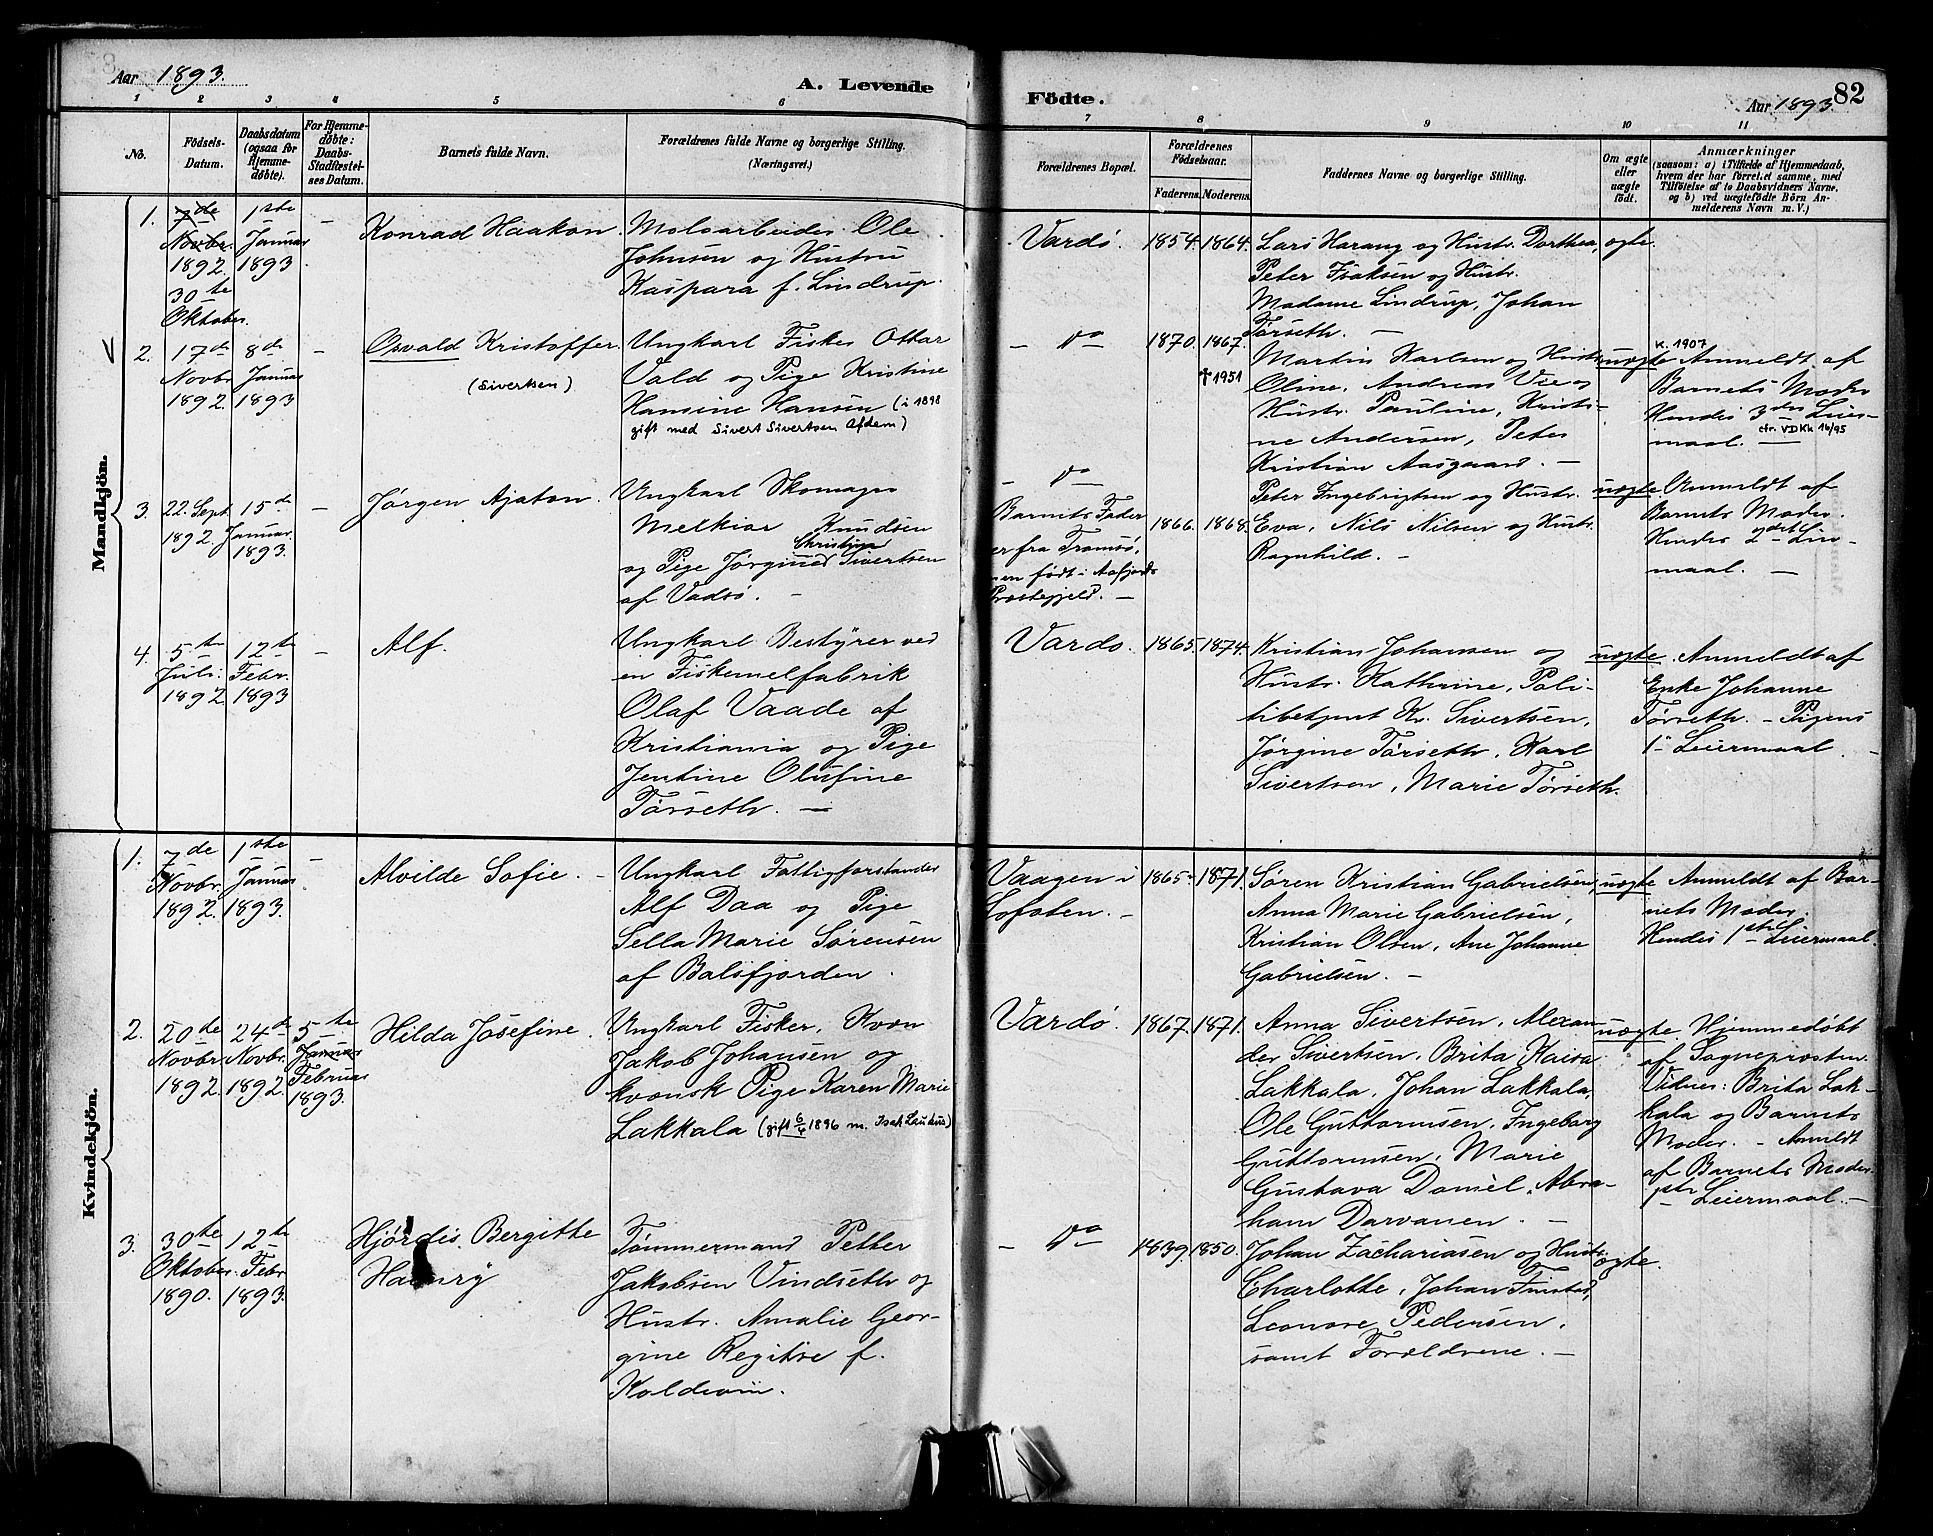 Aar 1893.
A. Levende
Födte.
Aar 1893.
82
1 2 3 4 5 6 7 8 9 10 11
No.
Födsels-Datum.
Daabsdatum (ogsaa for Hjemme-döbte).
For Hjemme-döbte: Daabs-Stadfæstel-ses Datum.
Barnets fulde Navn.
Forældrenes fulde Navne og borgerlige Stilling. (Næringsvei.)
Forældrenes Bopæl.
Forældrenes Födselsaar.
Faderens. Moderens.
Faddernes Navne og borgerlige Stilling.
Om ægte eller uægte født.
Anmærkninger
(saasom: a) i Tilfælde af Hjemmedaab,
hvem der har forret.et samme, med
Tilföielse af to Daabsvidners Navne,
og b) ved uægtefödte Börn An-
melderens Navn m. V.)
Mandkjön.
1.
7de
Novbr.
1892.
30te
Oktober.
1ste
Januar
1893
–
Konrad Haakon.
Moloarbeider Ole
Johnsen og Hustru
Kaspara f. Lindrup.
Vardö.
1854. 1864.
Lars Harang og Hustr. Dorthea,
Peter Isaksen og Hustr.
Madame Lindrup, Johan
Tørseth. –
ægte.
2.
17de
Novbr
1892.
8de
Januar
1893
–
Osvald Kristoffer.
(Sivertsen)
Ungkarl Fisker Ottar
Vald og Pige Kristine
Hansine Hansen (i 1898
gift med Sivert Sivertsen Afdem)
– do –
1870. 1867.
†1951
Martin Karlsen og Hustr.
Oline, Andreas Vie og
Hustr. Pauline, Kristi-
ne Andersen, Peter
Kristian Aasgaard. –
uægte
K. 1907
Anmeldt af
Barnets Moder
Hendes 3die Leier-
cfr. VDKk 16/95
maal. –
3.
22. Sept.
1892.
15de
Januar.
1893.
–
Jørgen Ajaton.
Ungkarl Skomager
Melkior Knudsen
Christine
og Pige Jørgine Sivertsen
af Vadsö. –
– do –
Barnets Fader
er fra Tromsö,
men født i Aafjords
Præstegjeld. –
1866. 1868.
Peter Ingebrigtsen og Hustr.
Eva, Nils Nilsen og Hustr.
Ragnhild. –
uægte
Anmeldt af
Barnets Moder.
Hendes 2det Lei-
maal. –
4.
5te
Juli
1892
12te
Febr.
1893
–
Alf.
Ungkarl Bestyrer ved
en Fiskemelfabrik
Olaf Vaade af
Kristiania og Pige
Jentine Olufine
Tørseth. –
Vardö.
1865. 1874.
Kristian Johansen og
Hustr. Kathrine, Poli-
tibetjent Kr. Sivertsen,
Jørgine Tørseth, Karl
Sivertsen, Marie Tørseth.
uægte.
Anmeldt af
Enke Johanne
Tørseth. – Pigens
1ste Leiermaal –
Kvindekjön.
1.
7de
Novbr.
1892.
1ste
Januar
1893.
–
Alvilde Sofie. –
Ungkarl Fattigforstander
Alf Daa og Pige
Sella Marie Sørensen
af Balsfjorden.
Vaagen i
Lofoten. –
1865. 1871.
Søren Kristian Gabrielsen,
Anna Marie Gabrielsen,
Kristian Olsen, Ane Johanne
Gabrielsen. –
uægte
Anmeldt af Bar-
nets Moder.
Hendes 1ste Leiermaal.
2.
20de
Novbr
1892.
24de
Novbr.
1892.
5te
Januar
Februar
1893.
Hilda Josefine.
Ungkarl Fisker, Kvæn
Jakob Johansen og
kvænsk Pige Karen Marie
Lakkala (gift 6/4 1896 m. Isak Laukus)
Vardö.
1867. 1871.
Anna Sivertsen, Alexan
der Sivertsen, Brita Kaisa
Lakkala, Johan Lakkala,
Ole Guttormsen, Ingeborg
Guttormsen, Marie
Gustava Daniel, Abra-
ham Darvanen. –
uægte.
Hjemmedøbt
af Sogneprosten.
Vidner: Brita Lak-
kala og Barnets
Moder. – Anmeldt
af Barnets Moder.
1ste Leiermaal. –
3.
30te
Oktober.
1890.
12te
Febr
1893.
Hjørdis Bergitte
Tømmermand Petter
Jakobsen Vindseth og
Hustr. Amalie Geor-
gine Regitse f.
– do –
1839. 1850.
Johan Zachariasen og Hustr.
Charlotte, Johan Finstad,
Leonore Pedersen,
samt Forældrene. –
ægte.